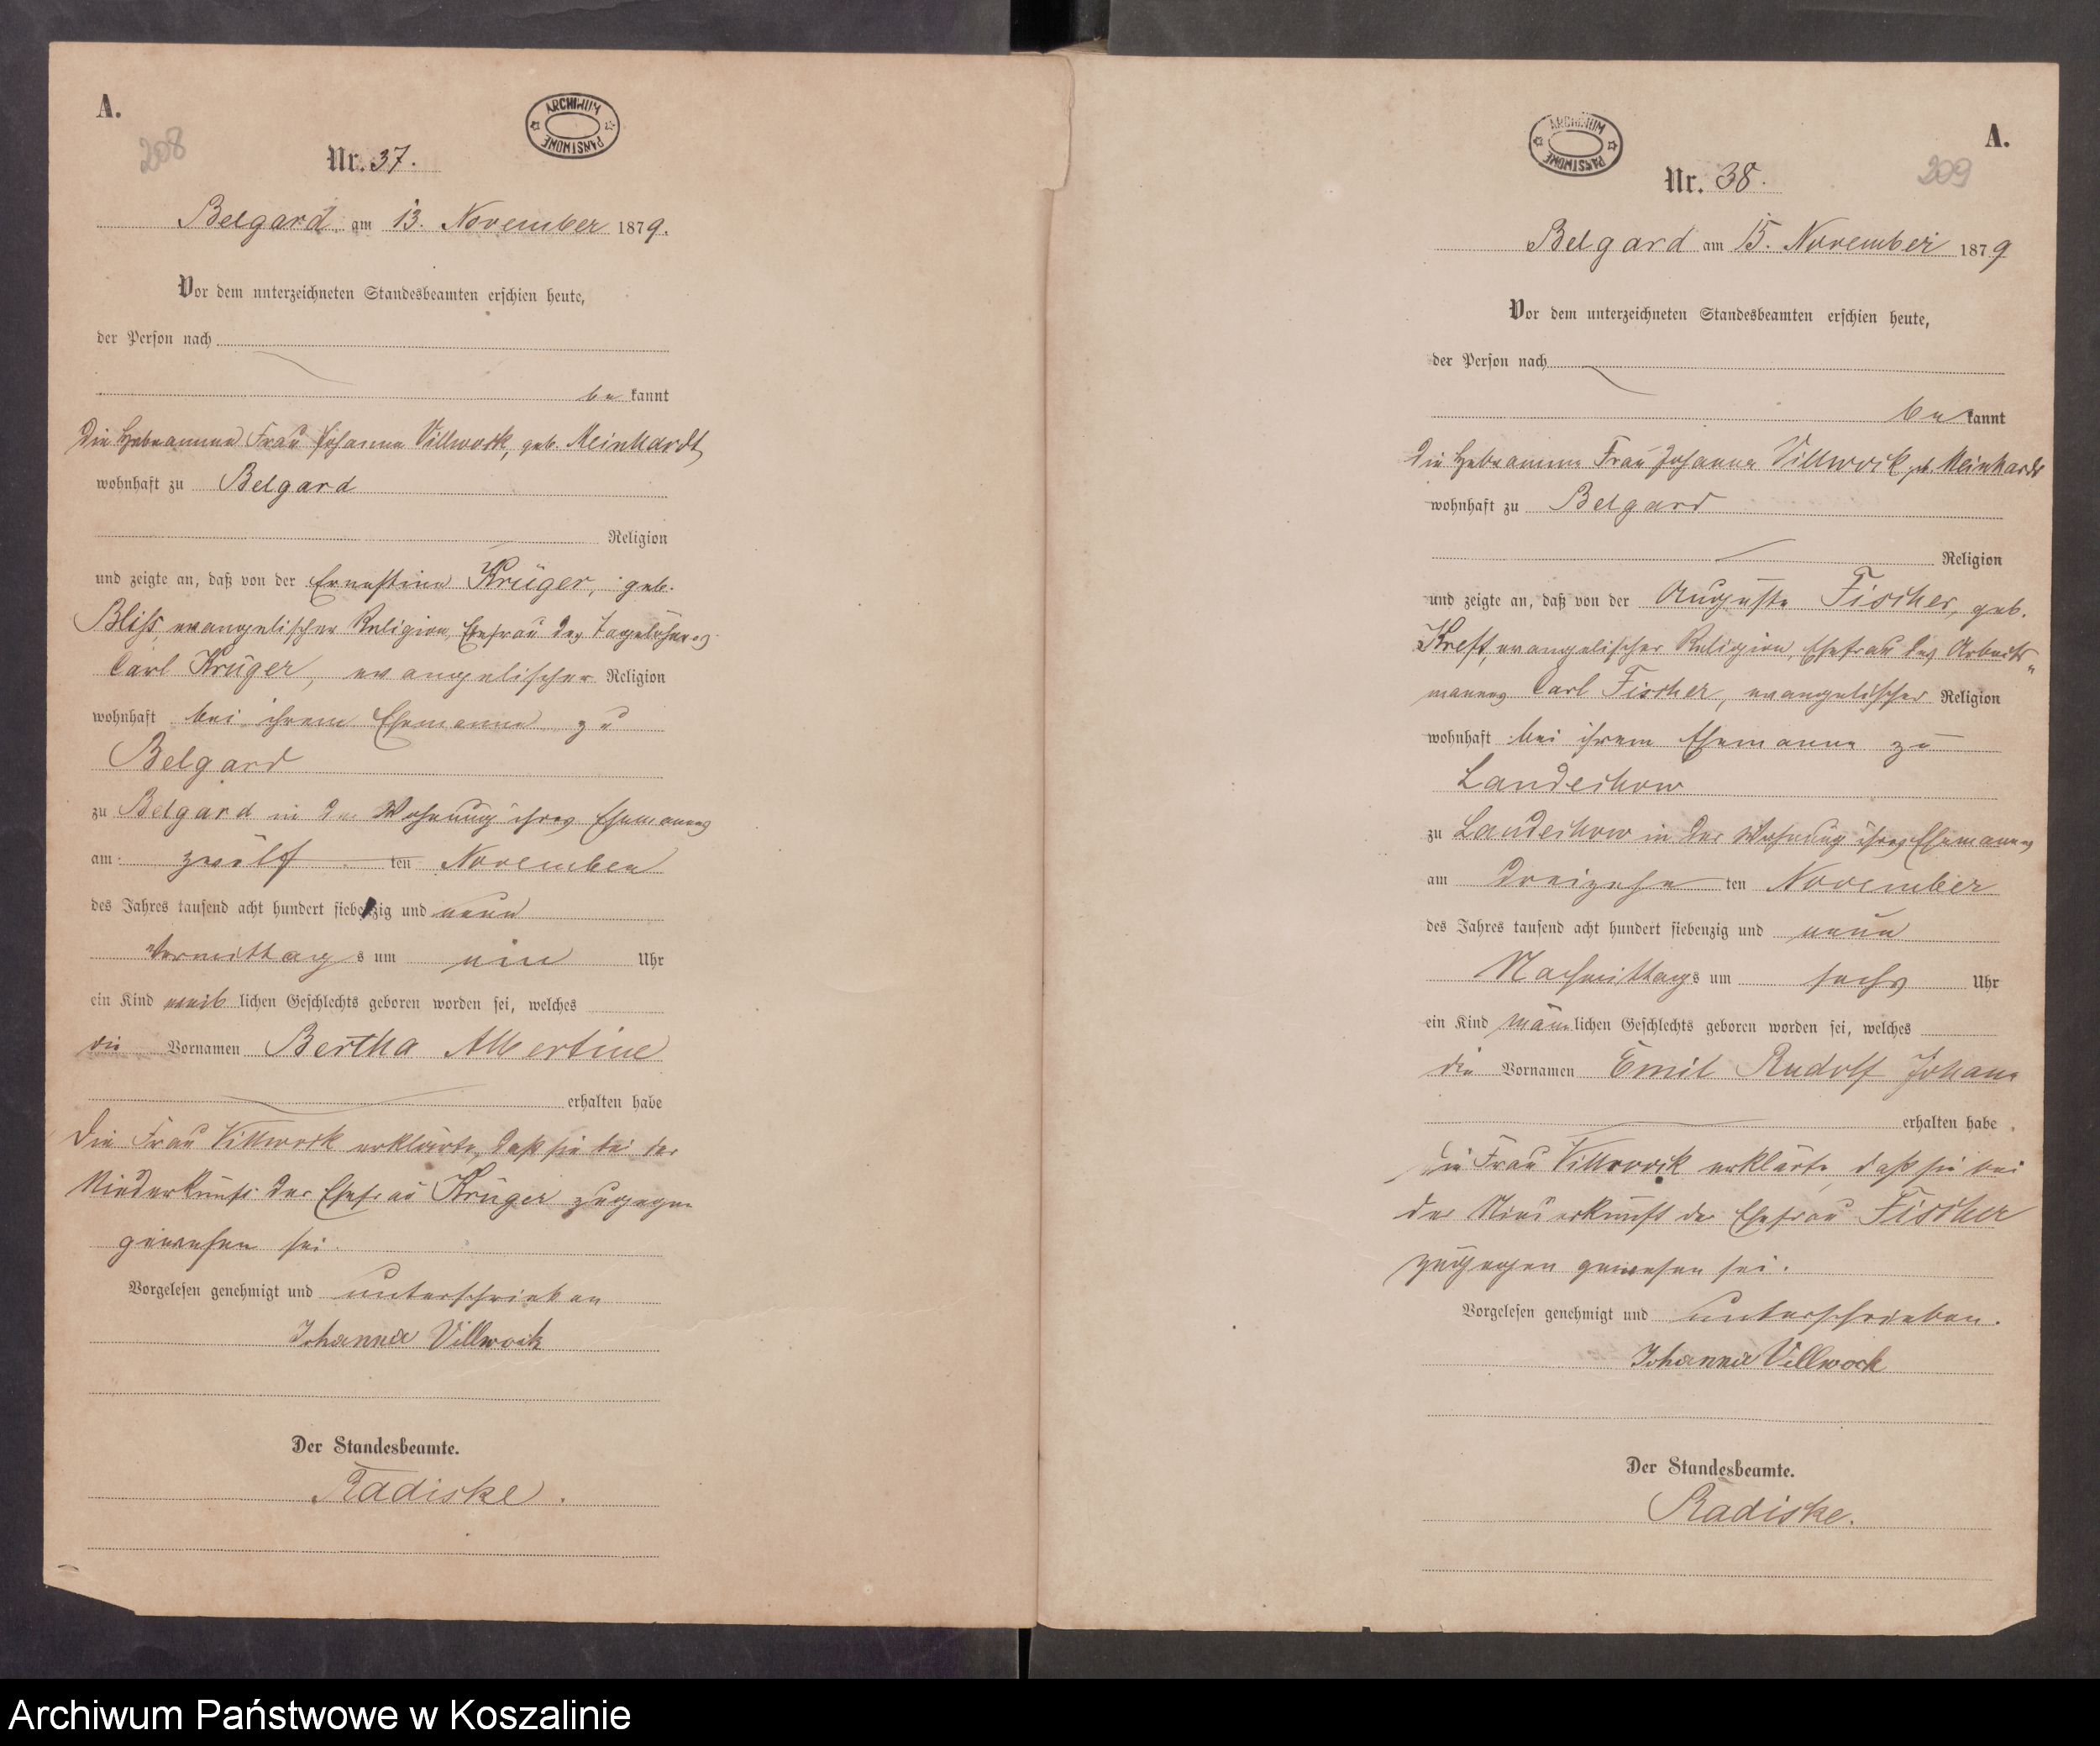 A.
208
ARCHIWUM PAŃSTWOWE
Nr. 37.
Belgard am 13. November 1879.
Vor dem unterzeichneten Standesbeamten erschien heute,
der Person nach
be kannt
die Hebeamme Frau Johanna Villwock, geb. Meinhardt
wohnhaft zu Belgard
Religion
und zeigte an, daß von der Ernestine Krüger, geb.
Bliss, evangelischer Religion, Ehefrau des Tagelöhners
Carl Krüger, evangelischer Religion
wohnhaft bei ihrem Ehemanne zu
Belgard
zu Belgard in der Wohnung ihres Ehemannes
am zwölf ten November
des Jahres tausend acht hundert siebenzig und neun
Vormittags um ein Uhr
ein Kind weib lichen Geschlechts geboren worden sei, welches
die Vornamen Bertha Albertine
erhalten habe
Die Frau Villwock erklärte, daß sie bei der
Niederkunft der Ehefrau Krüger zugegen
gewesen sei.
Vorgelesen genehmigt und unterschrieben
Johanna Villwock
Der Standesbeamte.
Radiske.
A.
209
ARCHIWUM PAŃSTWOWE
Nr. 38.
Belgard am 15. November 1879
Vor dem unterzeichneten Standesbeamten erschien heute,
der Person nach
be kannt
die Hebeamme Frau Johanna Villwock, geb. Meinhardt
wohnhaft zu Belgard
Religion
und zeigte an, daß von der Auguste Fischer, geb.
Kreft, evangelischer Religion, Ehefrau des Arbeits-
mannes Carl Fischer, evangelischer Religion
wohnhaft bei ihrem Ehemanne zu
Landechow
zu Landechow in der Wohnung ihres Ehemannes
am dreizehn ten November
des Jahres tausend acht hundert siebenzig und neun
Nachmittags um sechs Uhr
ein Kind männ lichen Geschlechts geboren worden sei, welches
die Vornamen Emil Rudolf Johann
erhalten habe
Die Frau Villwock erklärte, daß sie bei
der Niederkunft der Ehefrau Fischer
zugegen gewesen sei.
Vorgelesen genehmigt und unterschrieben.
Johanna Villwock
Der Standesbeamte.
Radiske.
Archiwum Państwowe w Koszalinie